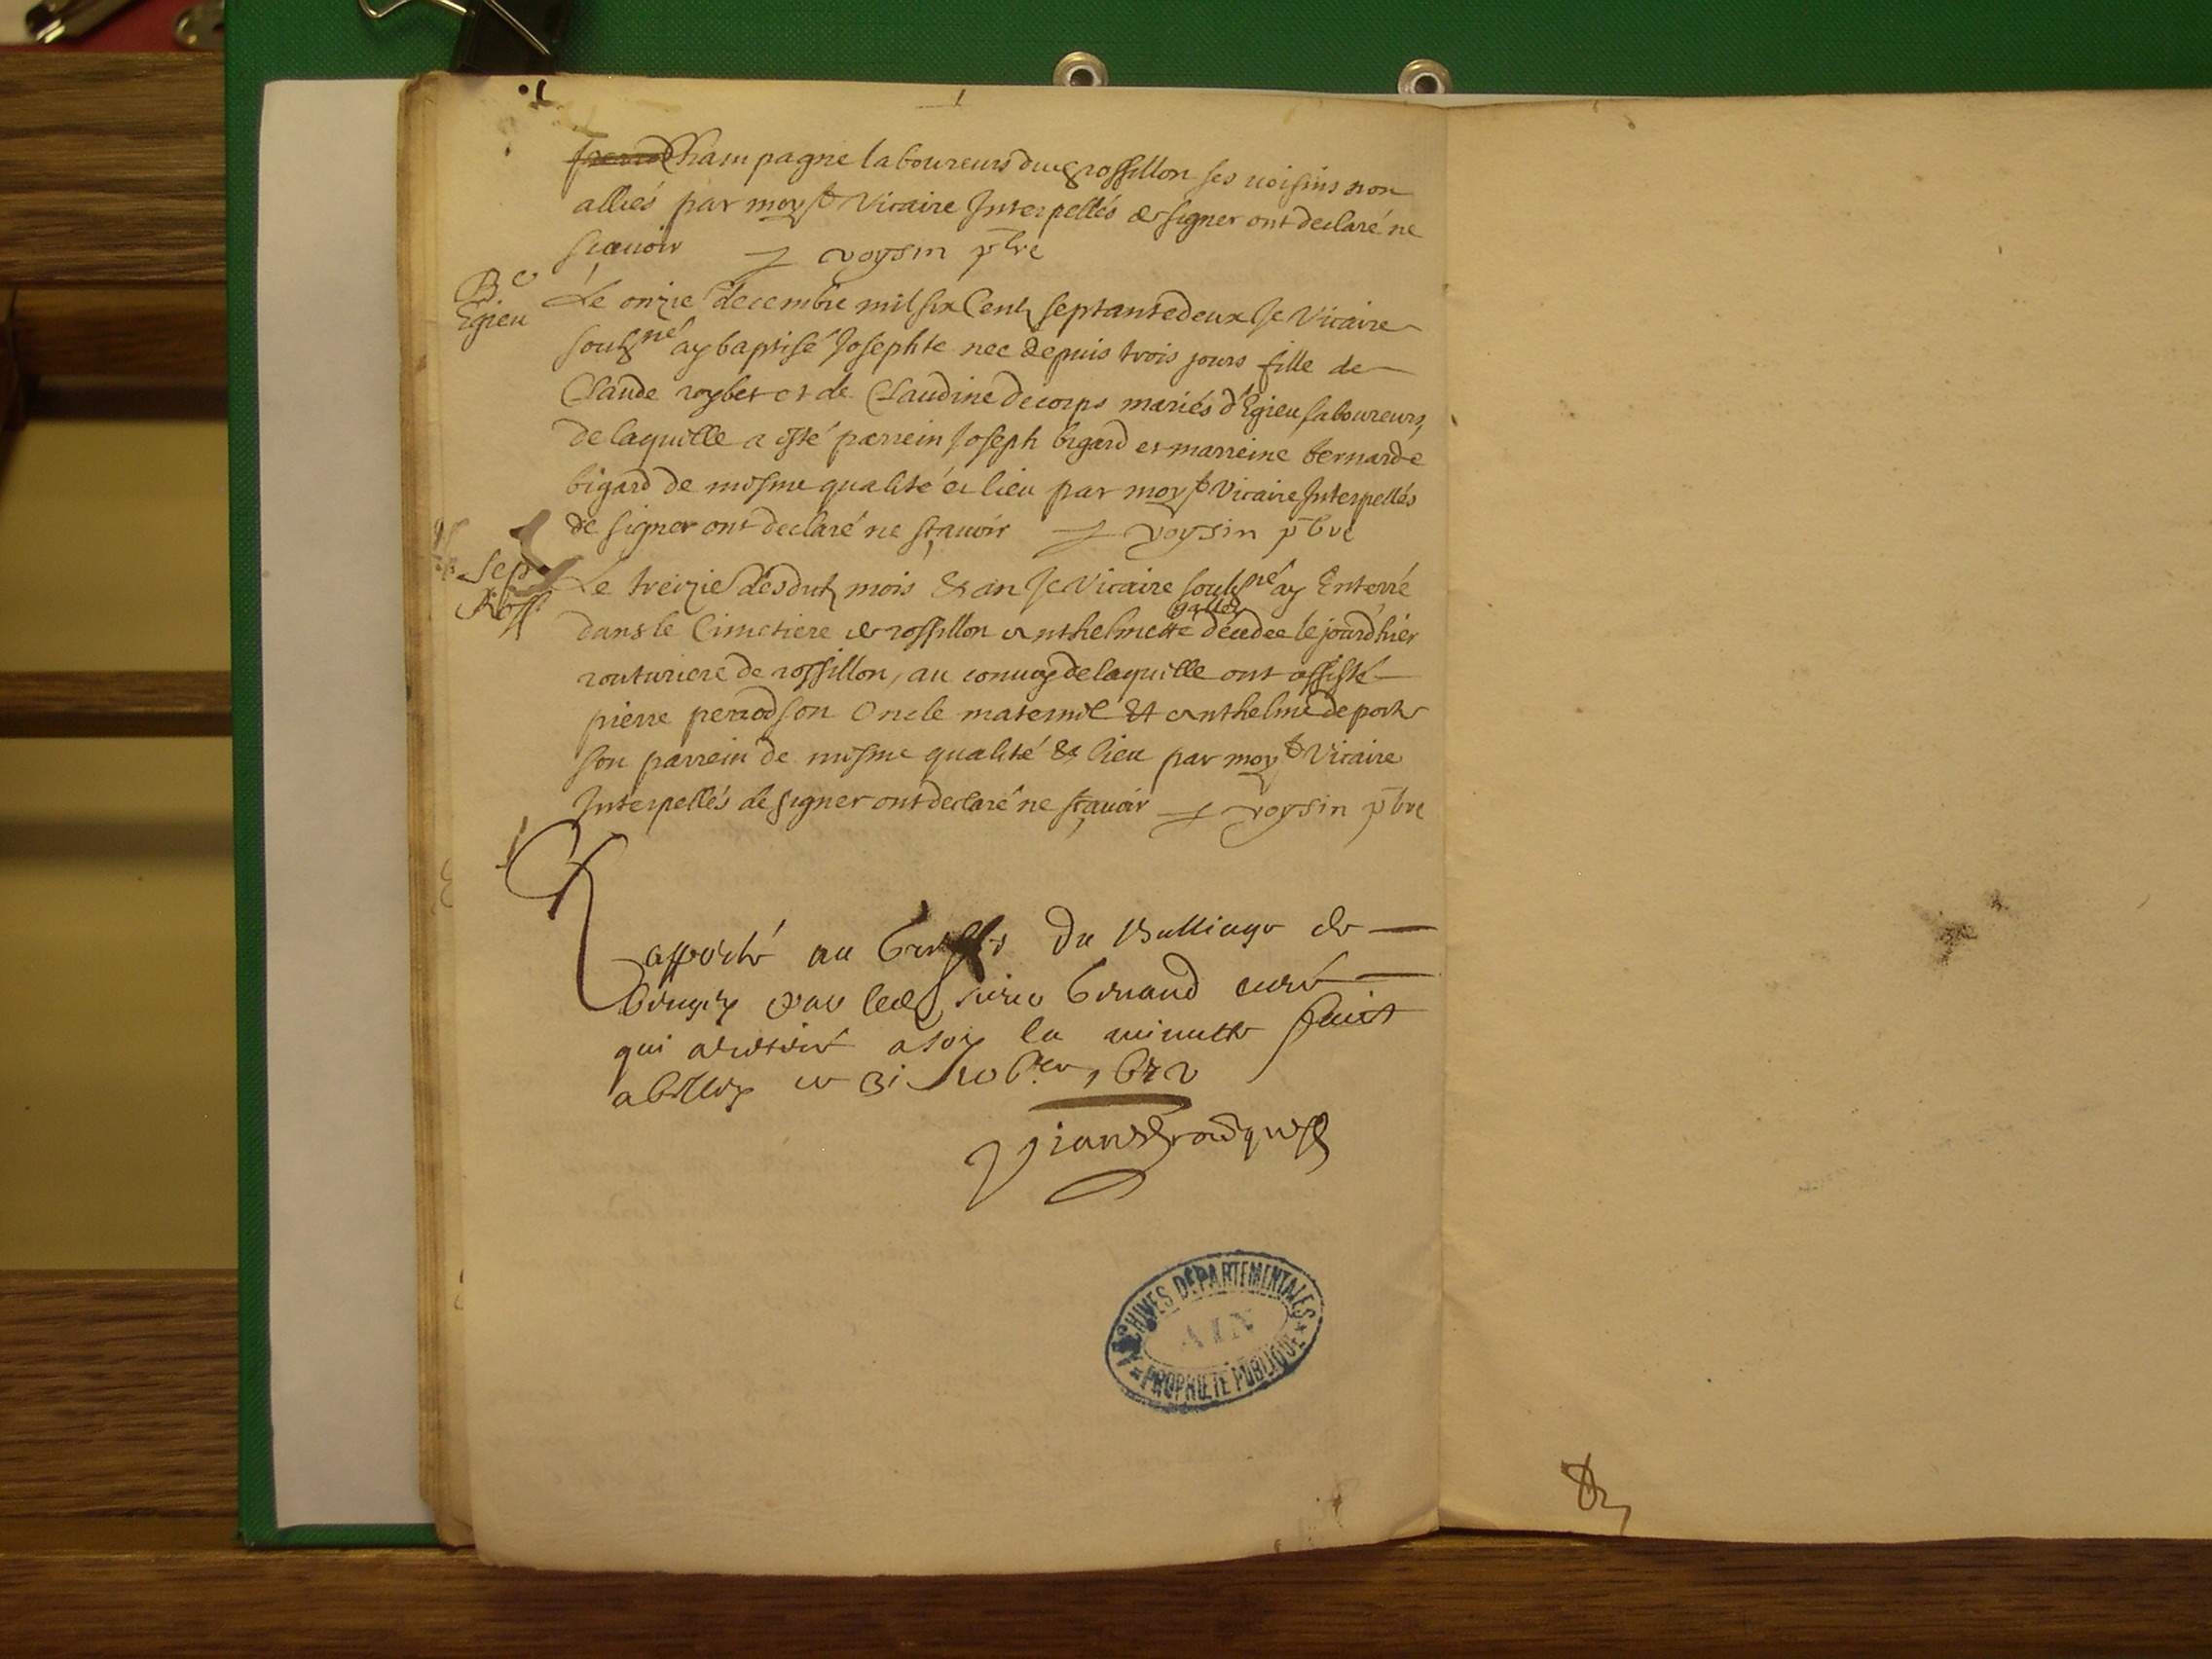 Champagne laboureurs dud rossillon ses voisins non
alliés par moy st Vicaire Interpellés de signer ont declaré ne
sçauoir voysin pbre
B.e
Egieu
Le onzie decembre mil six Cents septante deux Je Vicaire
soubsné ay baptisé Josephte nee depuis trois jours fille de
Claude roybet et de Claudine decorps mariés d'Egieu laboureurs,
de laquelle a esté parrein Joseph bigard et marreine bernarde
bigard de mesme qualité et lieu par moy st Vicaire Interpellés
de signer ont declaré ne sçauoir voysin pbre
sep
Ross
Le treizie desdits mois & an Je Vicaire soubsné ay Enterré
gallay
dans le Cimetiere de rossillon anthelmette décedee le jourdhier
routuriere de rossillon, au conuoy de laquelle ont assisté
pierre perrod son Oncle maternel Et anthelme de porte
son parrein de mesme qualité & lieu par moy st Vicaire
Interpellés de signer ont declaré ne sçauoir voysin pbre
Rapporté au Greffe du Balliage de
beugey par led sieur curé
qui a retiré a soy la minutte faict
a belley ce 31 Xbre 1672
ARCHIVES DÉPARTEMENTALES
AIN
PROPRIÉTÉ PUBLIQUE